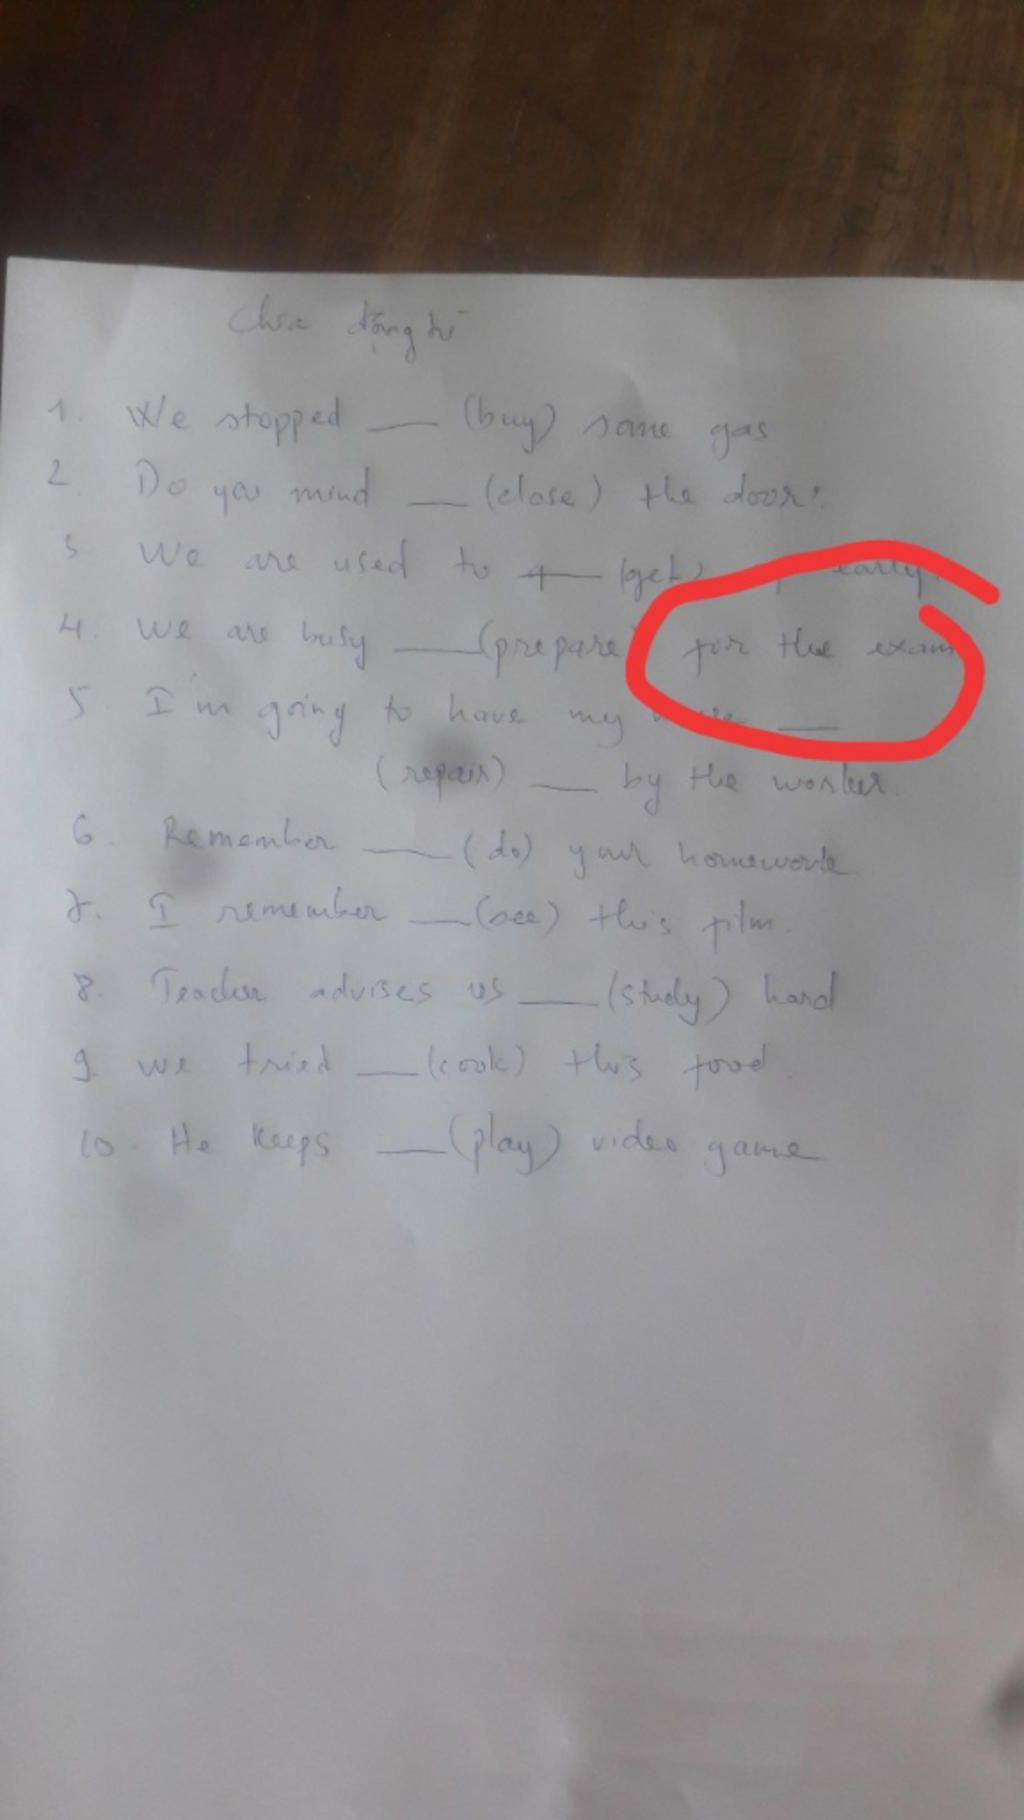 Chia động từ
1. We stopped __ (buy) some gas
2. Do you mind __ (close) the door?
3 We are used to __ (get) early.
4. We are busy __ (prepare) for the exam
5 I'm going to have my __
(repair) __ by the worker.
6. Remember __ (do) your homework
7. I remember __ (see) this film.
8. Teacher advises us __ (study) hard
9 we tried __ (cook) this food.
10. He keeps __ (play) video game